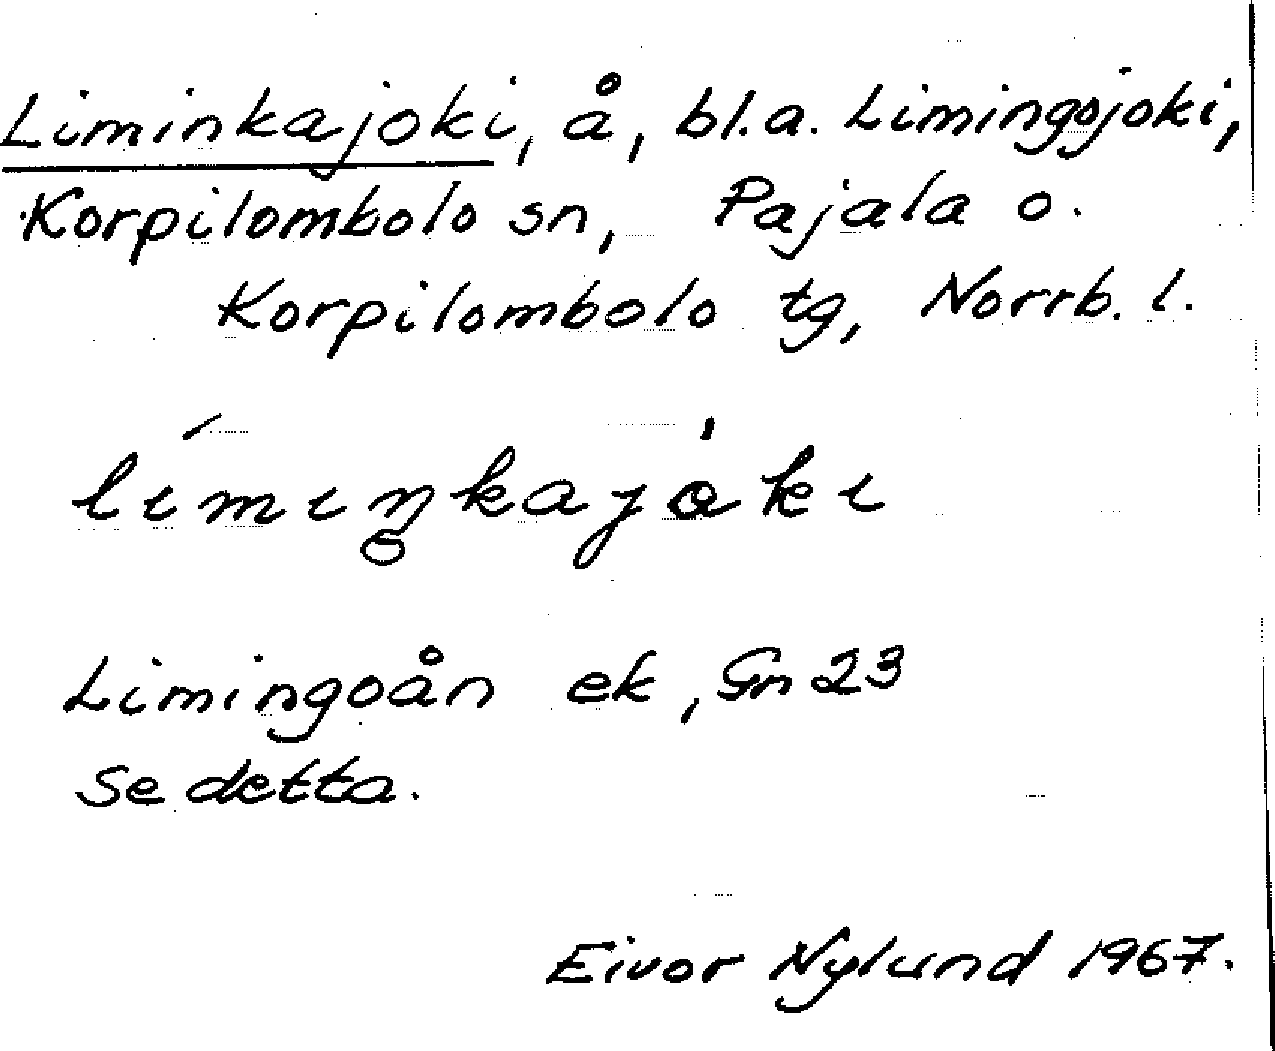 Liminkajoki, å, bl.a. Limingojoki,
Korpilombolo sn, Pajala o.
Korpilombolo tg, Norrb. l.
límiŋkajòki
Limingoån ek, Gn 23
Se detta.
Eivor Nylund 1967.